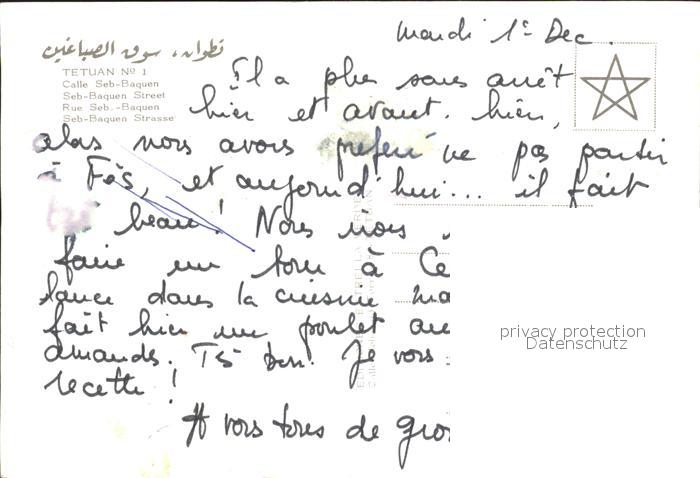 mardi 1er Dec.
تطوان، سوق الصباغين
TETUAN Nº 1
Calle Seb-Baquen
Seb-Baquen Street
Rue Seb.-Baquen
Seb-Baquen Strasse
Il a plu sans arrêt
hier et avant. hier,
alors nous avons préféré ne pas partir
à Fès, et aujourd'hui... il fait
très beau! Nous
faire un tour à Ce
lance dans la cuisine ma
fait hier un poulet au
amandes. Ts bon. Je vous
recette!
A vous tous de gros
privacy protection
Datenschutz